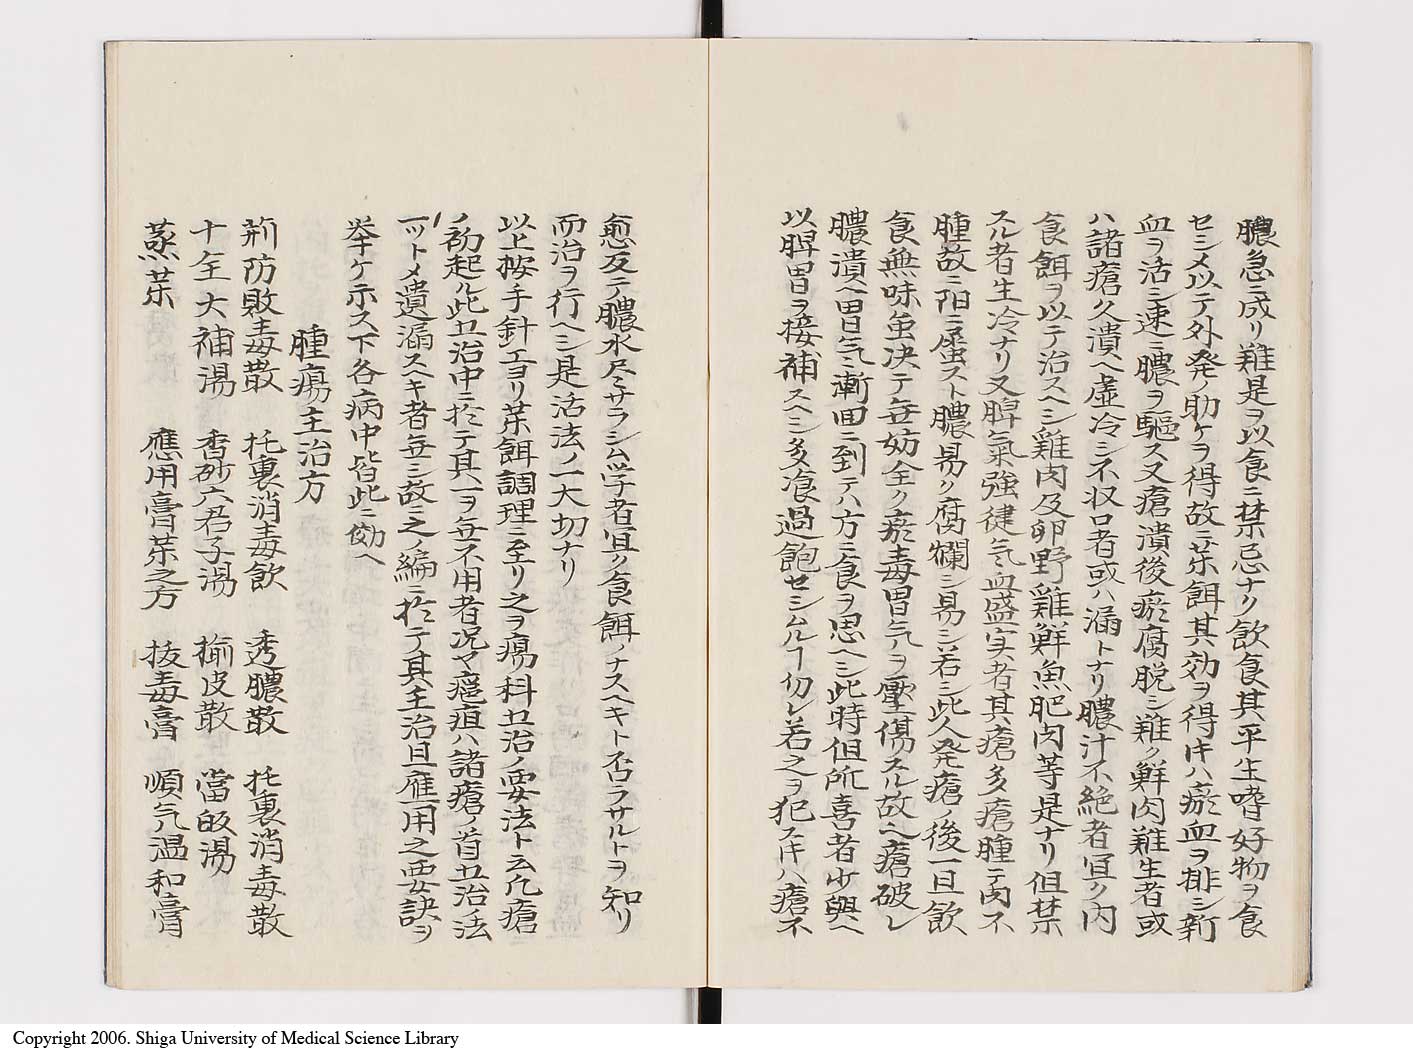 膿急ニ成リ難是ヲ以食ニ禁忌ナク飲食其平生嗜好物ヲ食
セシメ以テ外発ノ助ケヲ得故ニ茶餌其効ヲ得ヰハ瘀血ヲ排シ新
血ヲ活ミ速ニ膿ヲ駆ス又瘡潰後瘀腐脱シ難ク鮮肉難生者或
ハ諸瘡久潰ヘ虚冷シ不収口者或ハ漏トナリ膿汁不絶者宜ク内
食餌ヲ以テ治スヘシ雞肉及卵野雞鮮魚肥肉等是ナリ但禁
スル者生冷ナリ又脾氣強徤气血盛実者其瘡多瘡腫テ肉不
腫故ニ陽ニ属スト膿易ク腐爛シ易シ若ニ此人発瘡ノ後一旦飲
食無味虽决テ無妨全ク瘀毒胃气ヲ壓傷スル故ヘ瘡破レ
膿潰ヘ胃气漸回ニ到テハ方ニ食ヲ思ヘシ此時但所喜者少與ヘ
以脾胃ヲ接補スヘシ多飡過飽セシムルヿ勿レ若之ヲ犯スヰハ瘡不
愈反テ膿水尽ミサラシム学者宜ク食餌ノナスヘキト否ラサルトヲ知リ
而治ヲ行ヘシ是活法ノ一大切ナリ
以上按手針エヨリ茶餌調理ニ至リ之ヲ瘍科立治ノ要法ト云凢瘡
ノ初起ル此立治中ニ於テ其一ヲ毎不用者况ヤ癦疽ハ諸瘡ノ首立治法
一ツトメ遺漏スヘキ者毎シ故ニ之編ニ於テ其主治且應用之要訣ヲ
挙ケ示ス下各病中皆此ニ効ヘ
腫瘍主治方
荊防敗毒散 托裏消毒飲 透膿散 托裏消毒散
十全大補湯 香砂六君子湯 楡皮散 當皈湯
蒸茶 應用膏茶之方 抜毒膏 順气温和膏
Copyright 2006. Shiga University of Medical Science Library